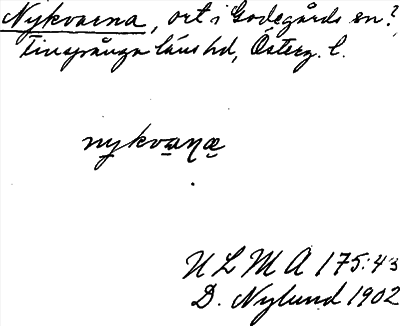 Nykvarna, ort i Godegårds sn?
Finspånga läns hd, Österg. l.
nykvaṉæ
ULMA 175:43
D. Nylund 1902